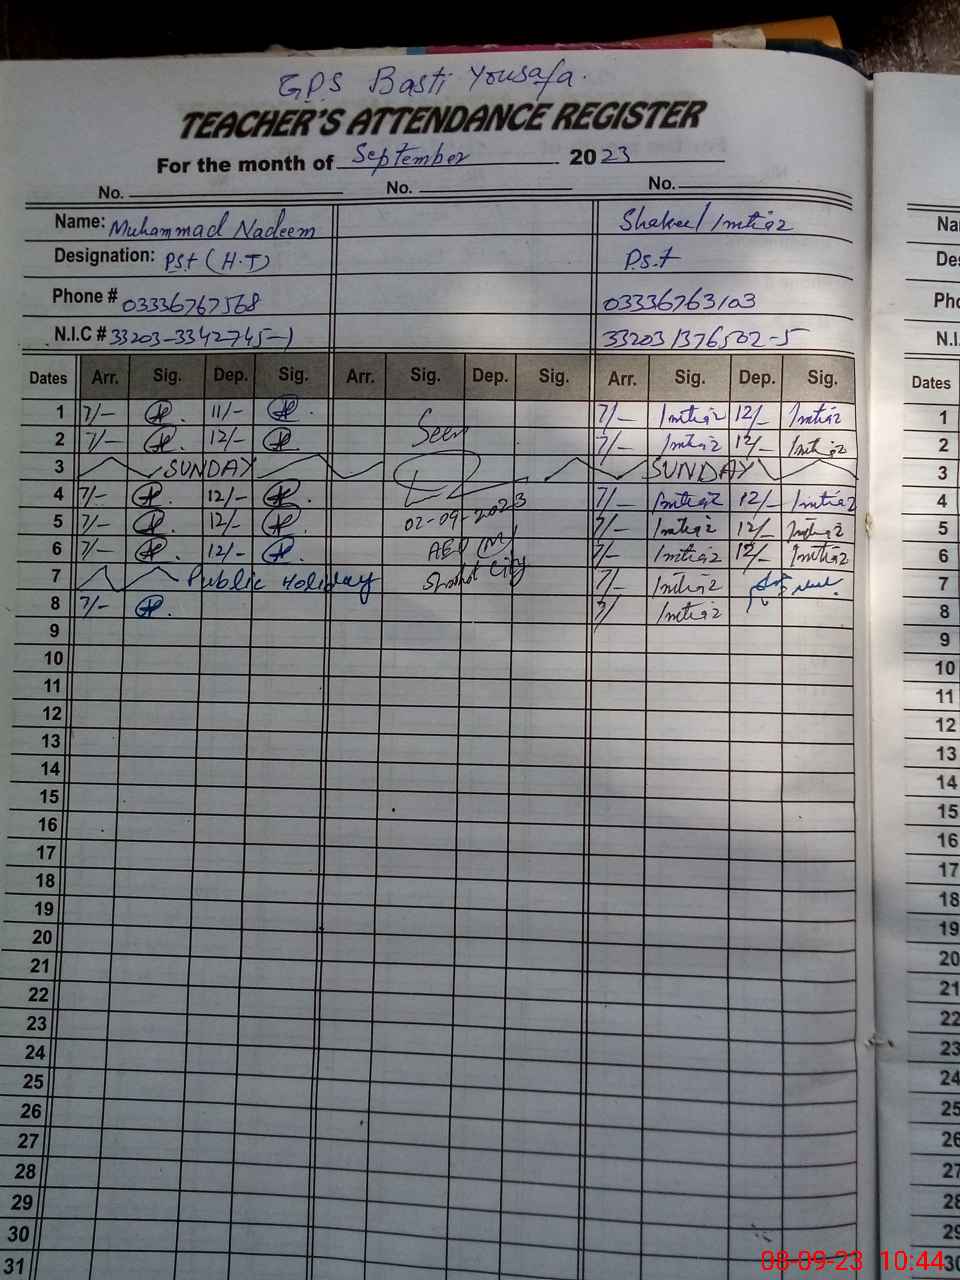 G.P.S Basti Yousafa.
TEACHER'S ATTENDANCE REGISTER
For the month of September 2023
No. No. No.
Name: Muhammad Nadeem Shakeel Imtiaz
Designation: P.S.t (H.T) P.S.T
Phone # 03336767568 03336763103
N.I.C # 33203-3342745-1 33203 1376502-5
Dates Arr. Sig. Dep. Sig. Arr. Sig. Dep. Sig. Arr. Sig. Dep. Sig.
1 7/- 11/- Seen 7/- Imtiaz 12/- Imtiaz
2 7/- 12/- 7/- Imtiaz 12/- Imtiaz
3 SUNDAY SUNDAY
4 7/- 12/- 7/- Imtiaz 12/- Imtiaz
5 7/- 12/- 02-09-2023 7/- Imtiaz 12/- Imtiaz
6 7/- 12/- AEO (M) 7/- Imtiaz 12/- Imtiaz
7 Public Holiday City 7/- Imtiaz
8 7/- 7/ Imtiaz
9
10
11
12
13
14
15
16
17
18
19
20
21
22
23
24
25
26
27
28
29
30
31
Na
De
Pho
N.I.
Dates
1
2
3
4
5
6
7
8
9
10
11
12
13
14
15
16
17
18
19
20
21
22
23
24
25
26
27
28
29
30
08-09-23 10:44